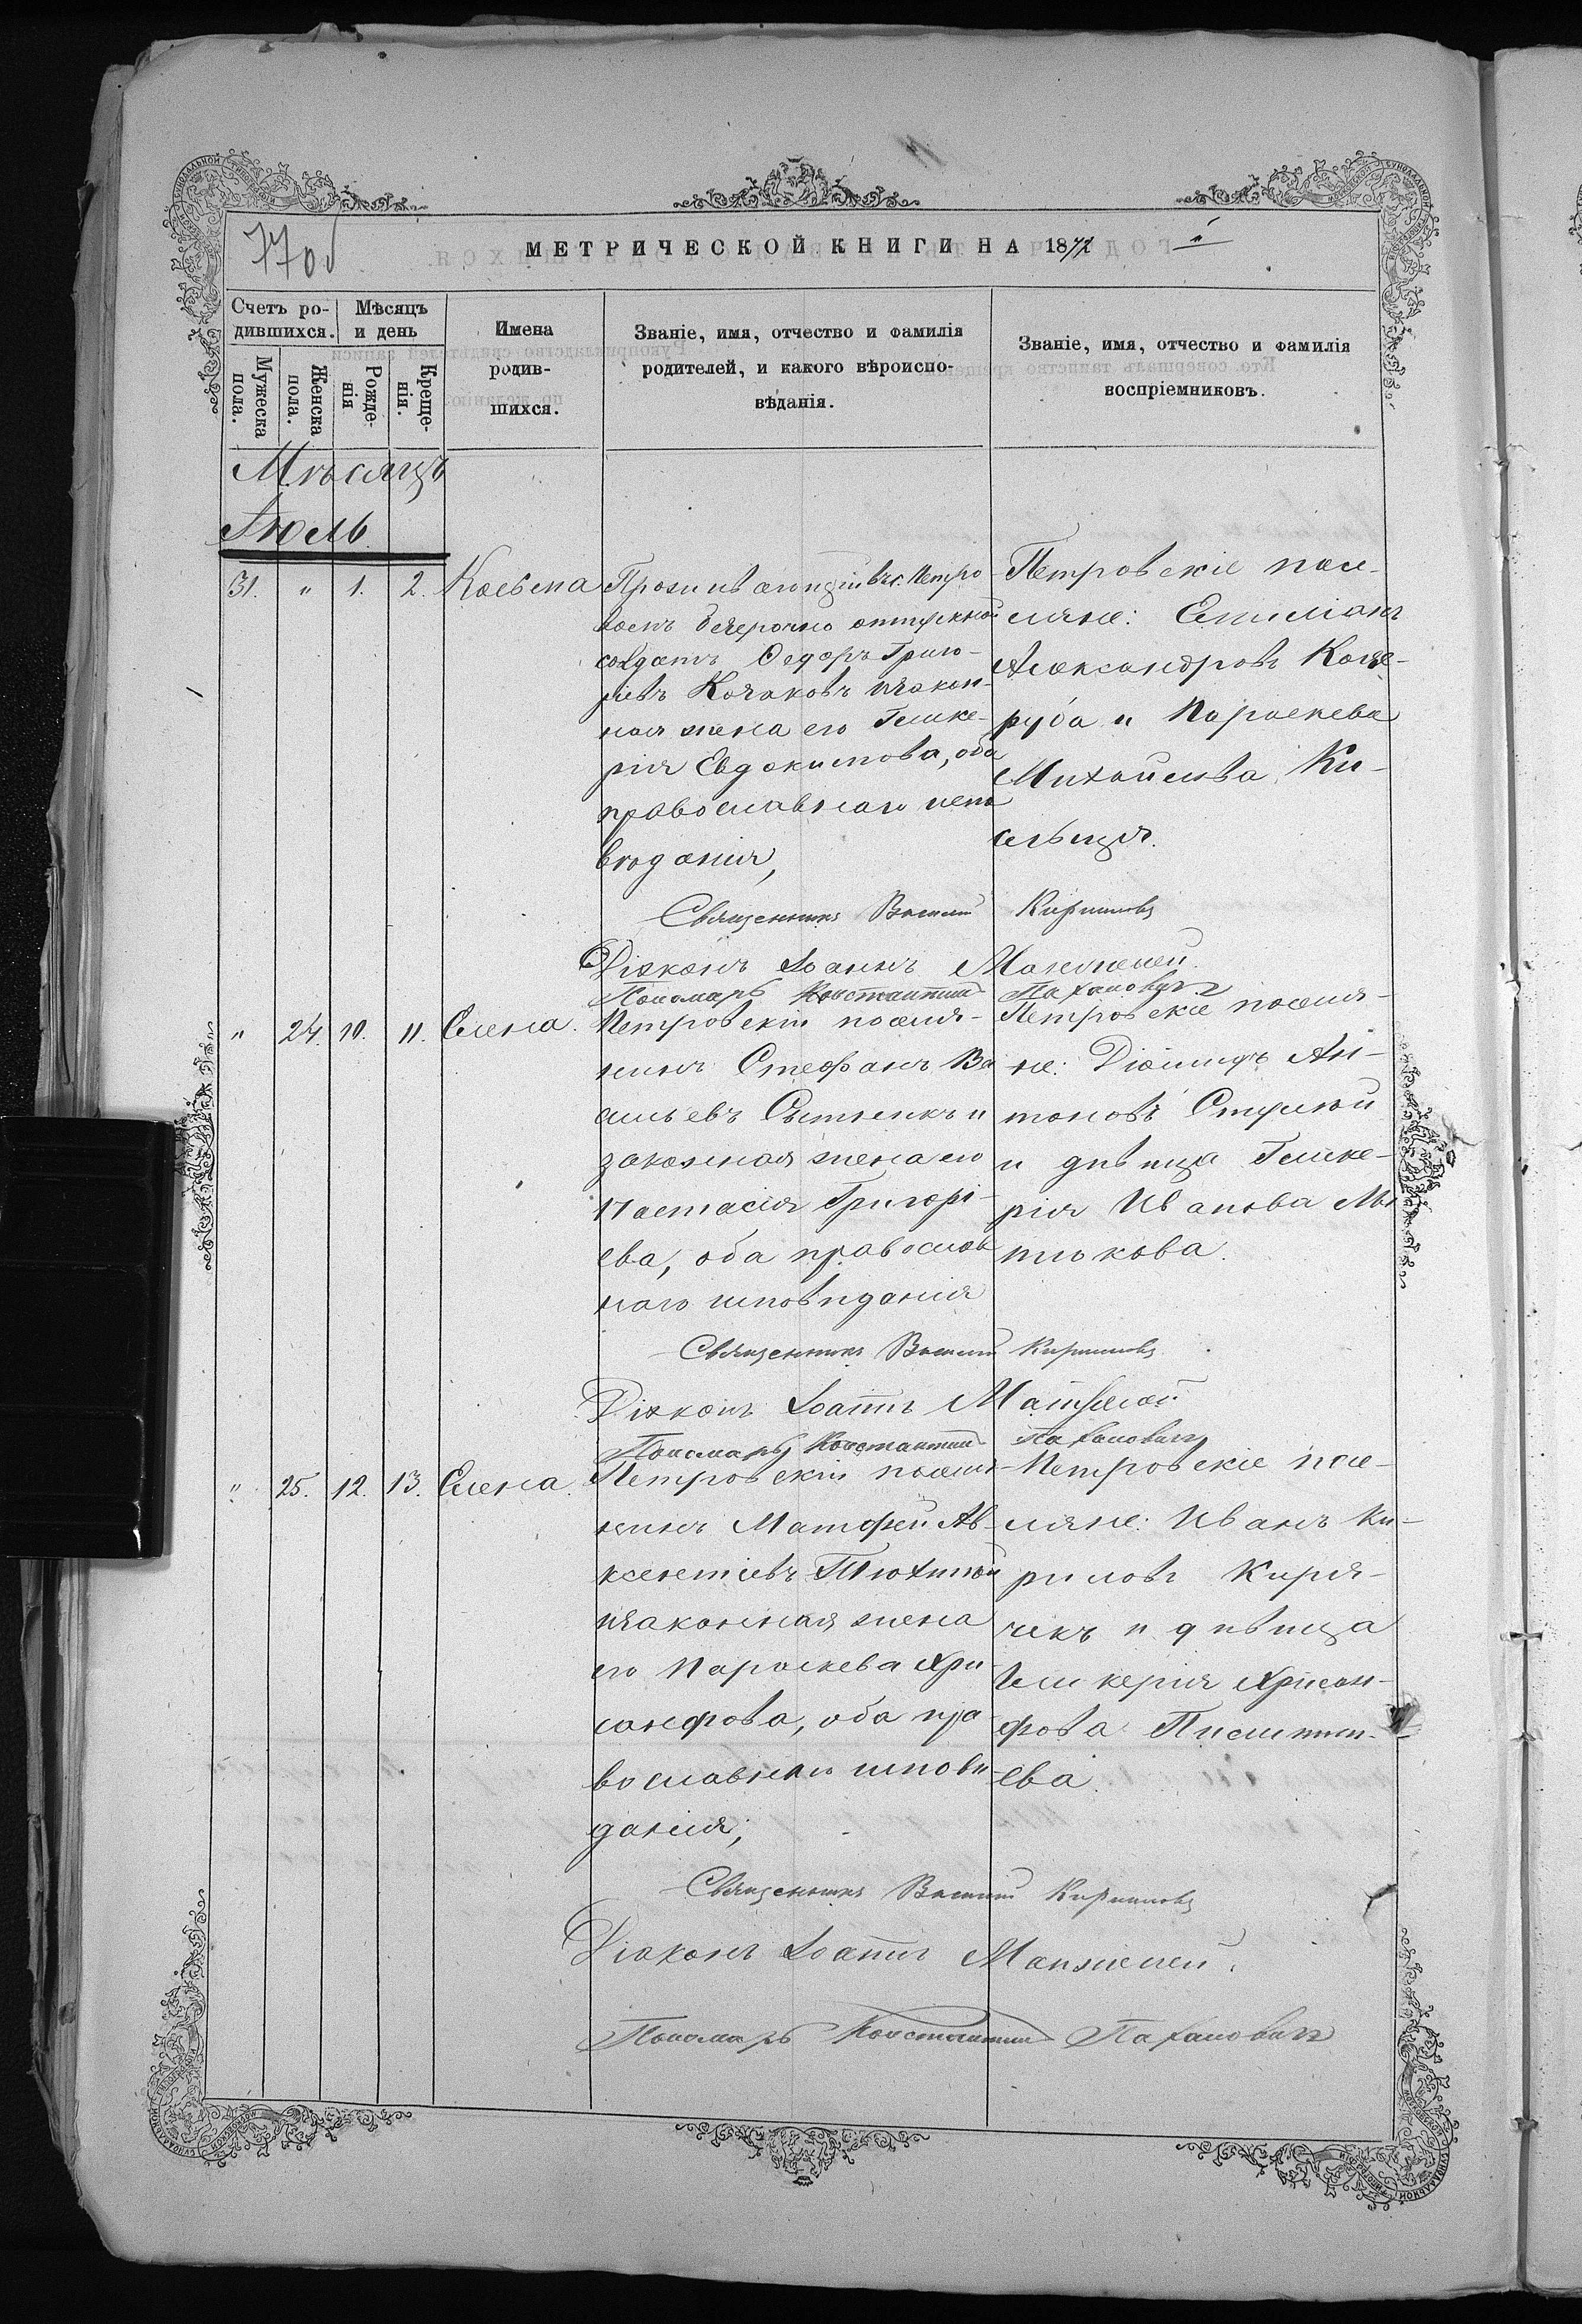 770об
МЕТРИЧЕСКОЙ КНИГИ НА 1872
Счетъ ро-
дившихся.
Мѣсяцъ
и день
Мужеска
пола.
Женска
пола.
Рожде-
нія
Креще-
нія.
Имена
родив-
шихся.
Званіе, имя, отчество и фамилія
родителей, и какого вѣроиспо-
вѣданія.
Званіе, имя, отчество и фамилія
воспріемниковъ.
Мѣсяцъ
Іюль
31. " 1. 2. Косьма
Проживающій въ с. Петро
солдатъ Ѳедоръ Григо-
рьевъ Козаковъ и закон-
ная жена его Глике-
рія Евдокимова, оба
православнаго испо
вѣданія,
Петровскіе посе-
ляне: Емиліанъ
Александровъ
и Параскева
Михайлова Ки-
Священникъ Василій Кириловъ
Діаконъ Іоаннъ Манжелей
Пономарь Константинъ
" 24. 10. 11. Елена.
Петровскій поселя-
нинъ Стефанъ Ва
сильевъ Сытникъ и
законная жена его
Настасія Григорі-
ева, оба православ
наго исповѣданія
Петровскіе поселя-
не: Діомидъ Ан-
тоновъ
и дѣвица Глике-
рія Иванова
Священникъ Василій Кириловъ
Діаконъ Іоаннъ
Пономарь Константинъ
" 25. 12. 13. Елена.
Петровскій поселя-
нинъ Матфей Ав-
ксентіевъ
и законная жена
его Параскева Хри-
санфова, оба пра-
вославнаго исповѣ-
данія;
Петровскіе посе-
ляне: Иванъ Ки-
риловъ Киря-
чекъ и дѣвица
Гликерія Хрисан-
фова
ева
Священникъ Василій Кириловъ
Діаконъ Іоаннъ Манжелей.
Пономарь Константинъ